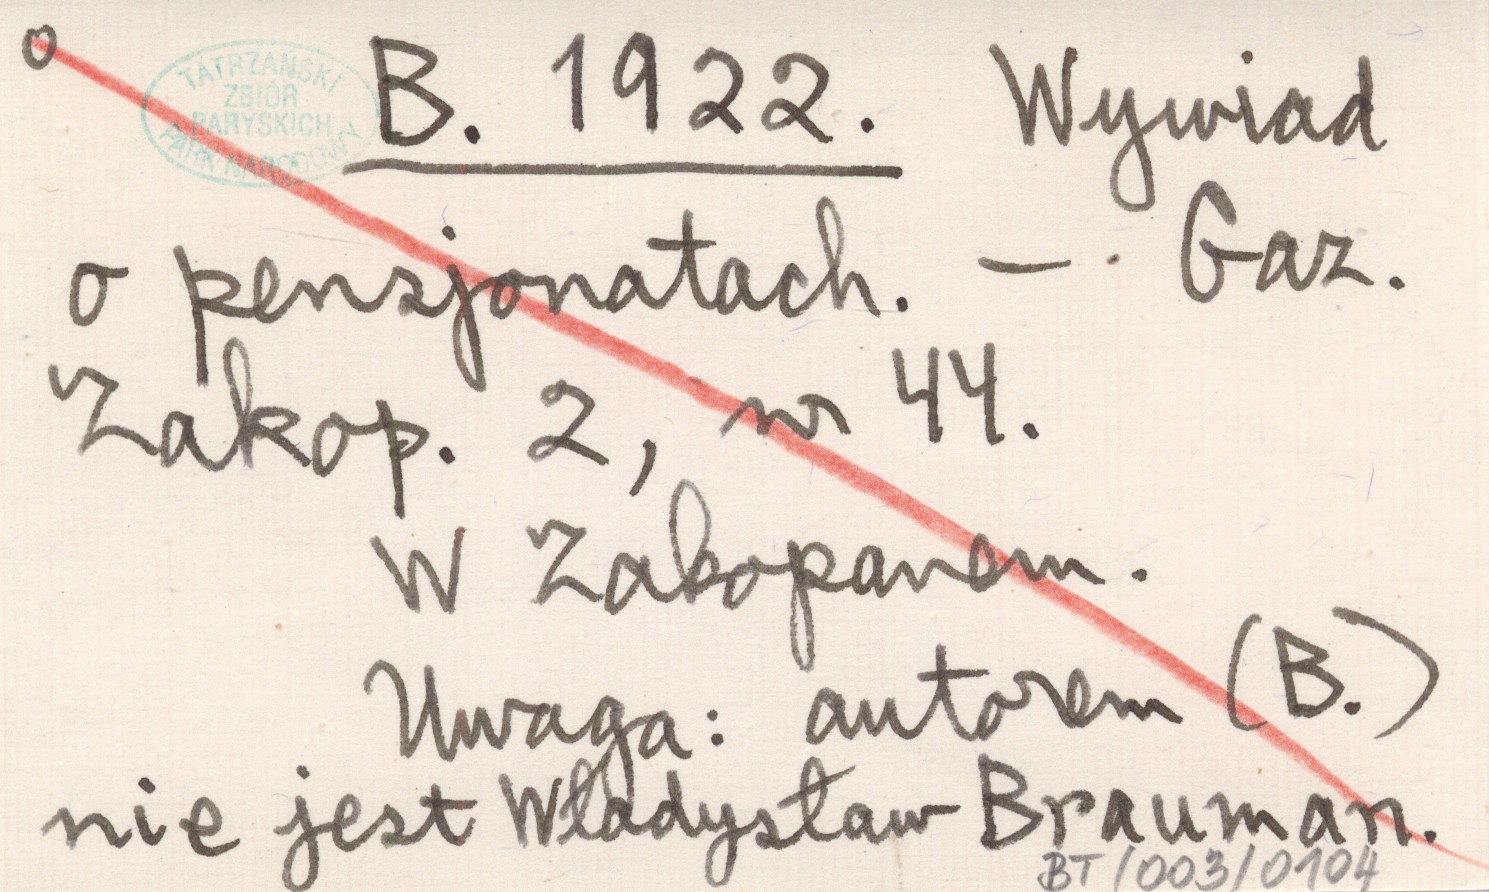 o B. 1922. Wywiad
TATRZAŃSKI
ZBIÓR
PARYSKICH
PARK NARODOWY
o pensjonatach. — . Gaz.
Zakop. 2, nr 44.
W Zakopanem.
Uwaga: autorem (B.)
nie jest Władysław Brauman.
BT/003/0104